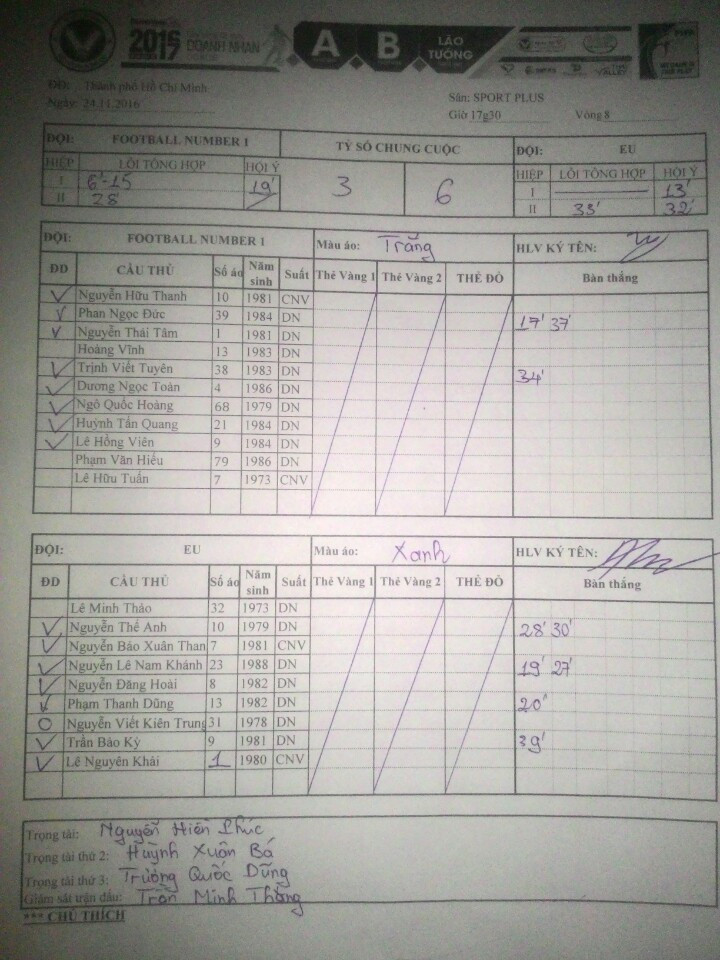 2016
DOANH NHÂN
A B LÃO TƯỚNG
ĐĐ: Thành phố Hồ Chí Minh
Sân: SPORT PLUS
Ngày: 24.11.2016 Giờ 17g30 Vòng 8
ĐỘI: FOOTBALL NUMBER 1 TỶ SỐ CHUNG CUỘC ĐỘI: EU
HIỆP LỖI TỔNG HỢP HỘI Ý 3 6 HIỆP LỖI TỔNG HỢP HỘI Ý
I 6'-15 19' I 13'
II 28' II 33' 32'
ĐỘI: FOOTBALL NUMBER 1 Màu áo: Trắng HLV KÝ TÊN:
ĐD CẦU THỦ Số áo Năm sinh Suất Thẻ Vàng 1 Thẻ Vàng 2 THẺ ĐỎ Bàn thắng
Nguyễn Hữu Thanh 10 1981 CNV
Phan Ngọc Đức 39 1984 DN 17' 37'
Nguyễn Thái Tâm 1 1981 DN
Hoàng Vĩnh 13 1983 DN
Trịnh Viết Tuyên 38 1983 DN 34'
Dương Ngọc Toàn 4 1986 DN
Ngô Quốc Hoàng 68 1979 DN
Huỳnh Tấn Quang 21 1984 DN
Lê Hồng Viên 9 1984 DN
Phạm Văn Hiếu 79 1986 DN
Lê Hữu Tuấn 7 1973 CNV
ĐỘI: EU Màu áo: Xanh HLV KÝ TÊN:
ĐD CẦU THỦ Số áo Năm sinh Suất Thẻ Vàng 1 Thẻ Vàng 2 THẺ ĐỎ Bàn thắng
Lê Minh Thảo 32 1973 DN
Nguyễn Thế Anh 10 1979 DN 28' 30'
Nguyễn Bảo Xuân Than 7 1981 CNV
Nguyễn Lê Nam Khánh 23 1988 DN 19' 27'
Nguyễn Đăng Hoài 8 1982 DN
Phạm Thanh Dũng 13 1982 DN 20'
Nguyễn Viết Kiên Trung 31 1978 DN
Trần Bảo Kỳ 9 1981 DN 39'
Lê Nguyên Khải 1 1980 CNV
Trọng tài: Nguyễn Hiền Phúc
Trọng tài thứ 2: Huỳnh Xuân Bá
Trọng tài thứ 3: Trương Quốc Dũng
Giám sát trận đấu: Trần Minh Thắng
*** CHÚ THÍCH